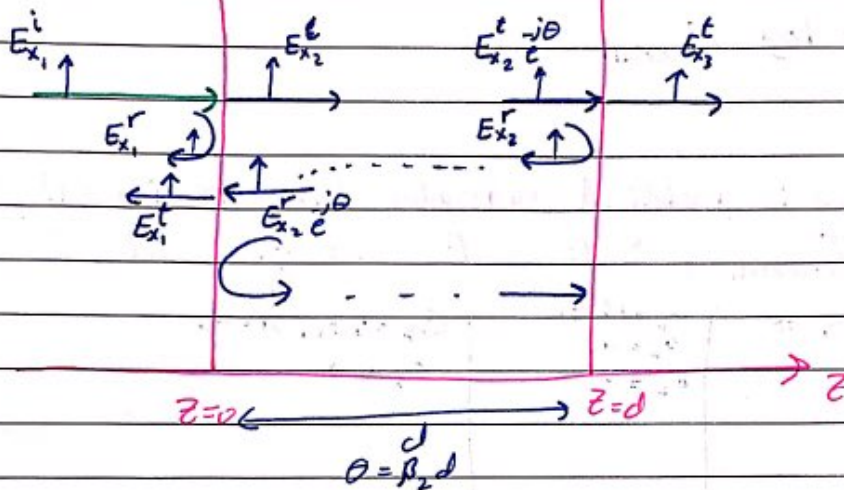 E_{x_1}^i E_{x_2}^t E_{x_2}^t e^{-jθ} E_{x_3}^t
E_{x_1}^r E_{x_2}^r
E_{x_1}^t E_{x_2}^r e^{-jθ}
z=0 d z=d z
θ=β_2 d